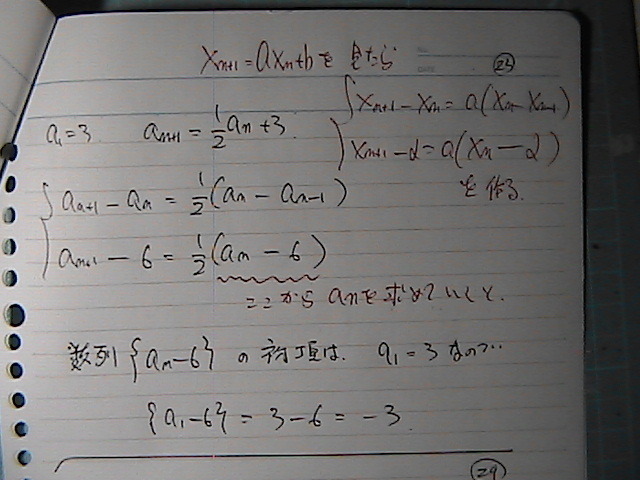 x_{n+1} = ax_n + b を 見たら
㉓
x_{n+1} - x_n = a(x_n - x_{n-1})
x_{n+1} - α = a(x_n - α)
を作る.
a_1 = 3 a_{n+1} = \frac{1}{2}a_n + 3.
a_{n+1} - a_n = \frac{1}{2}(a_n - a_{n-1})
a_{n+1} - 6 = \frac{1}{2}(a_n - 6)
ここから a_n を求めていくと.
数列 {a_n - 6} の 初項は. a_1 = 3 なので…
{a_1 - 6} = 3 - 6 = -3.